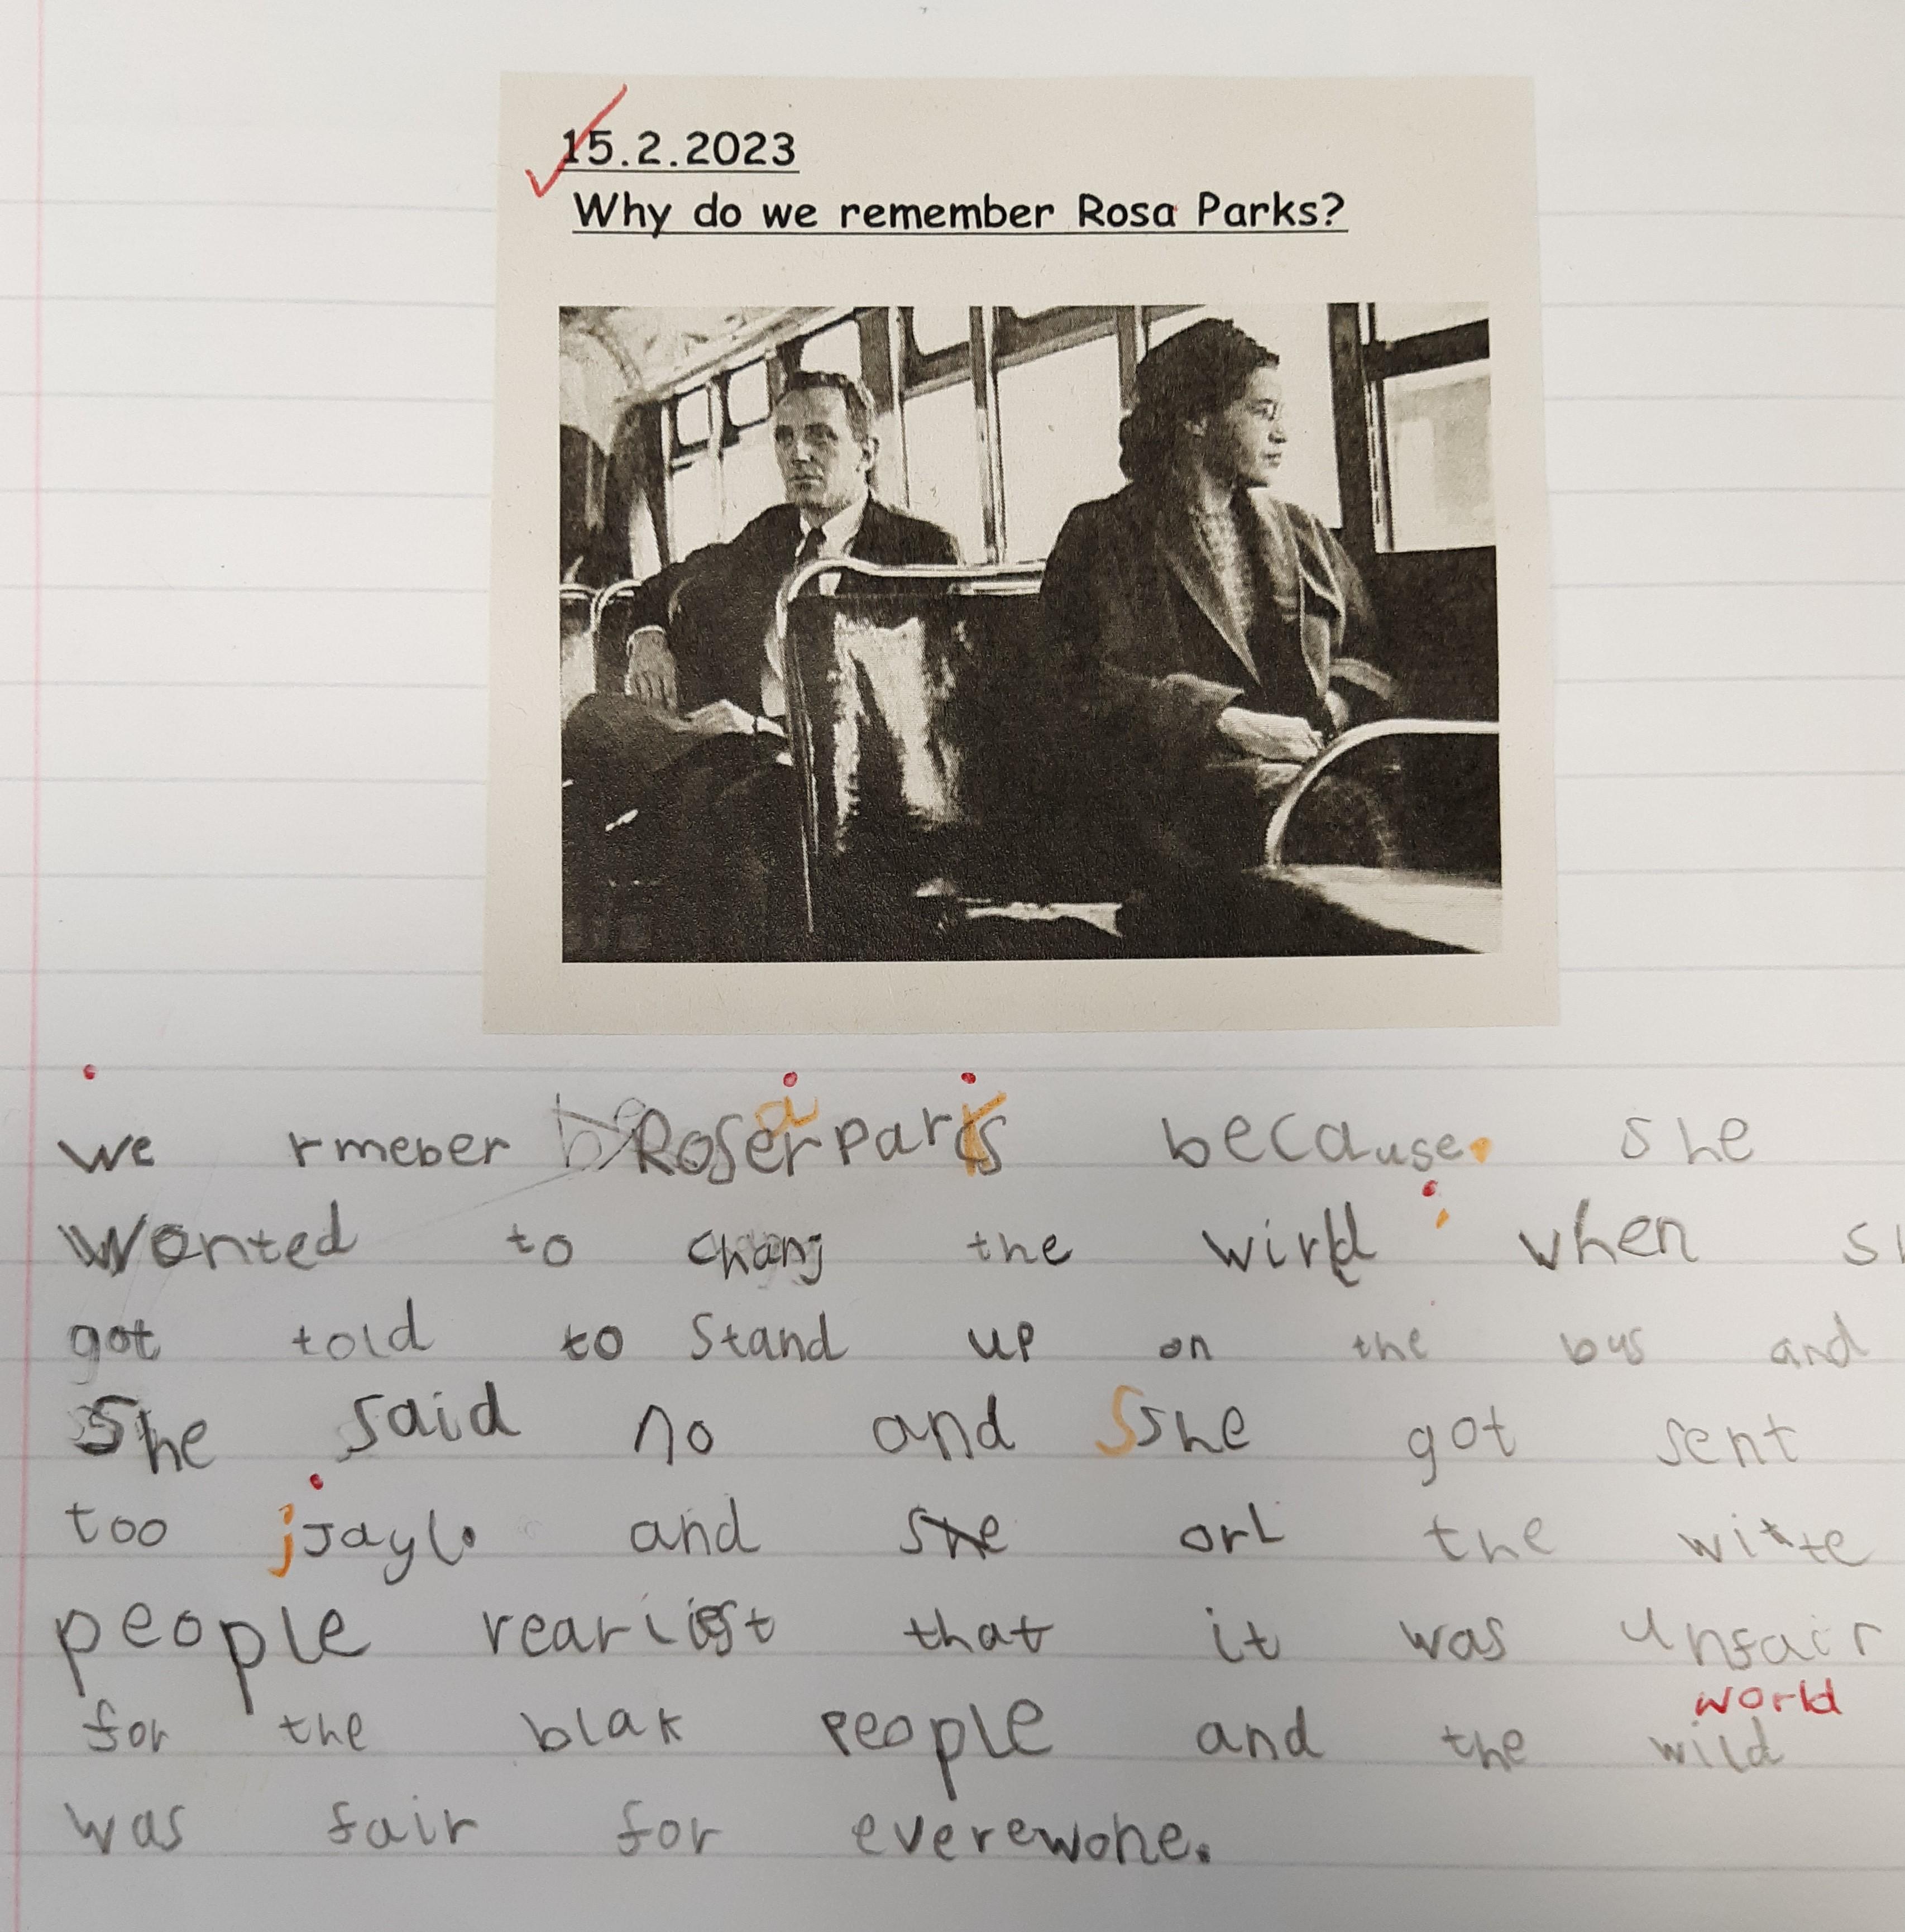 15.2.2023
Why do we remember Rosa Parks?
we rmeber Roser parks because. she
Wonted to chang the wirld when sh
got told to Stand up on the bus and
She said no and Sshe got sent
too jJayl. and she orl the witte
people reariost that it was unfair
world
for the blak people and the wild
was fair for everewone.